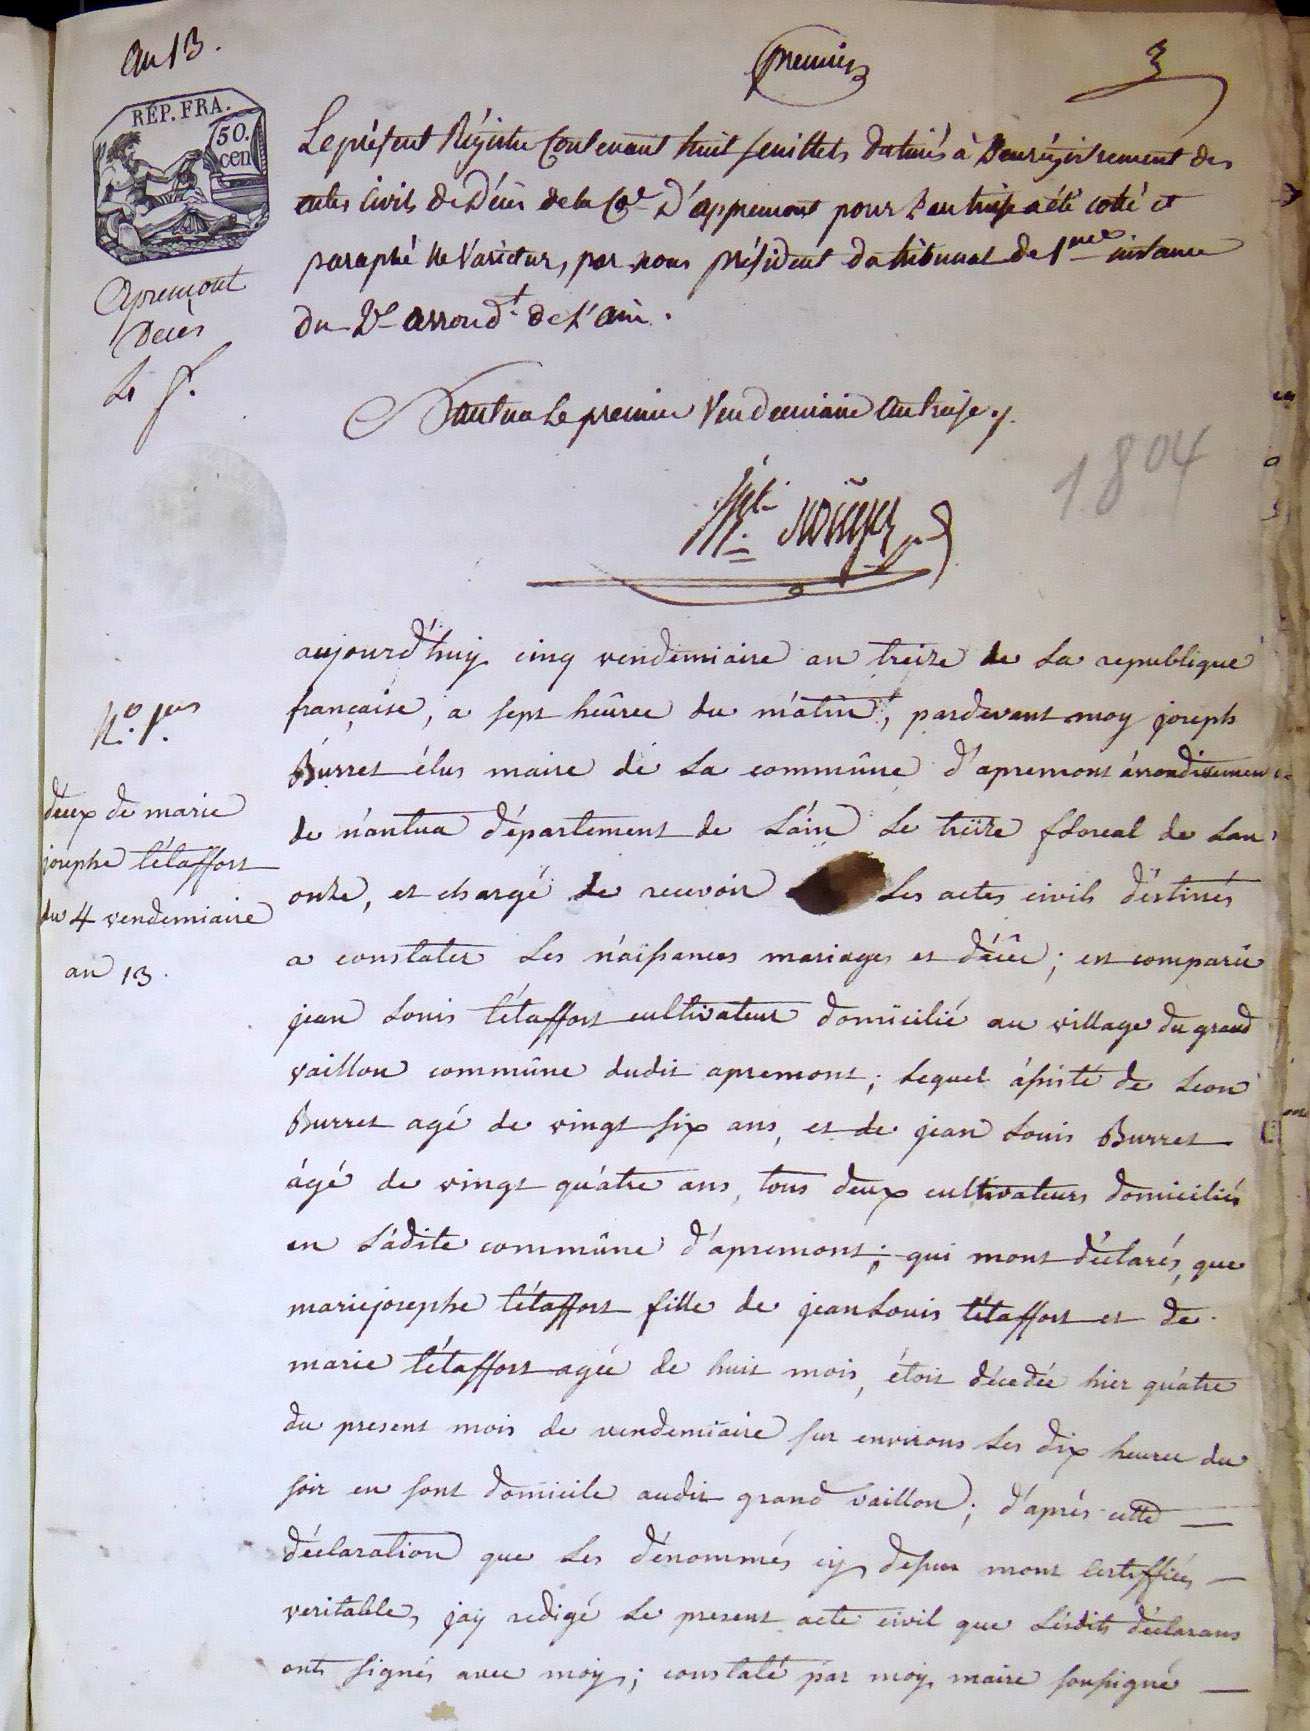 an 13.
premier
3
RÉP. FRA.
50.
cen
Le présent Régistre Contenant huit feuillets destinés à L'enrégistrement des
actes Civils de Décès de la Cne D'appremont pour L'an treize a été coté et
paraphé ne Varietur, par nous président du tribunal de 1ere instance
du 2e arrondt de L'ain.
apremont
Décès
Nantua Le premier Vendemiaire an treise
1804
aujourd'huy cinq vendemiaire an treize de La republique
française, a sept heûres du mâtin, pardevant moy joseph
Burret élus maire de La commûne d'apremont árrondissement
de nantua département de L'áin Le treize floreal de Lan
onze, et chargé de recevoir Les actes civils déstinés
a constater Les náissances mariages et décès; est comparû
jean Louis tétaffort cultivateur domicilié au village du grand
vaillon commûne dudit apremont; Lequel ássisté de Leon
Burret agé de vingt six ans, et de jean Louis Burret
ágé de vingt quátre ans, tous deux cultivateurs domiciliés
en Ládite commûne d'apremont; qui mont déclarés, que
marie josephe tétaffort fille de jean Louis tétaffort et de
marie tétaffort agée de huit mois, étoit décedée hier quátre
du present mois de vendemiaire sur environs Les dix heures du
soir en sont domicile audit grand vaillon; d'aprés cette
déclaration que Les dénommés cy dessus mont certiffiés
veritable, jay redigé Le present acte civil que Lésdits déclarans
ont signés avec moy; constaté pár moy maire soussigné
No 1er
décex de marie
josephe tétaffort
du 4 vendemiaire
an 13.